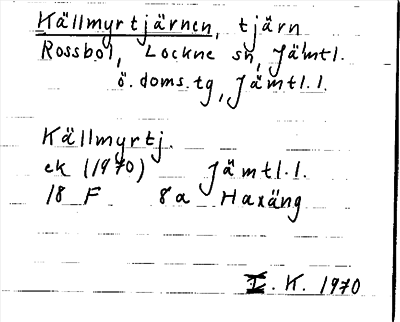 Källmyrtjärnen, tjärn
Rossbol, Lockne sn, Jämtl.
ö. doms. tg, Jämtl. l.
Källmyrtj.
ek (1970) Jämtl. l.
18 F 8a Haxäng
I. K. 1970